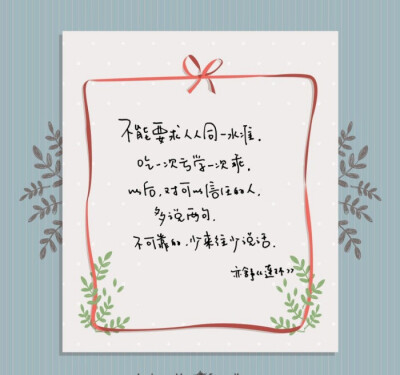 不能要求人人同一水准.
吃一次亏学一次乖,
以后,对可以信任的人,
多说两句.
不可靠的,少来往少说话.
亦舒《莲环》